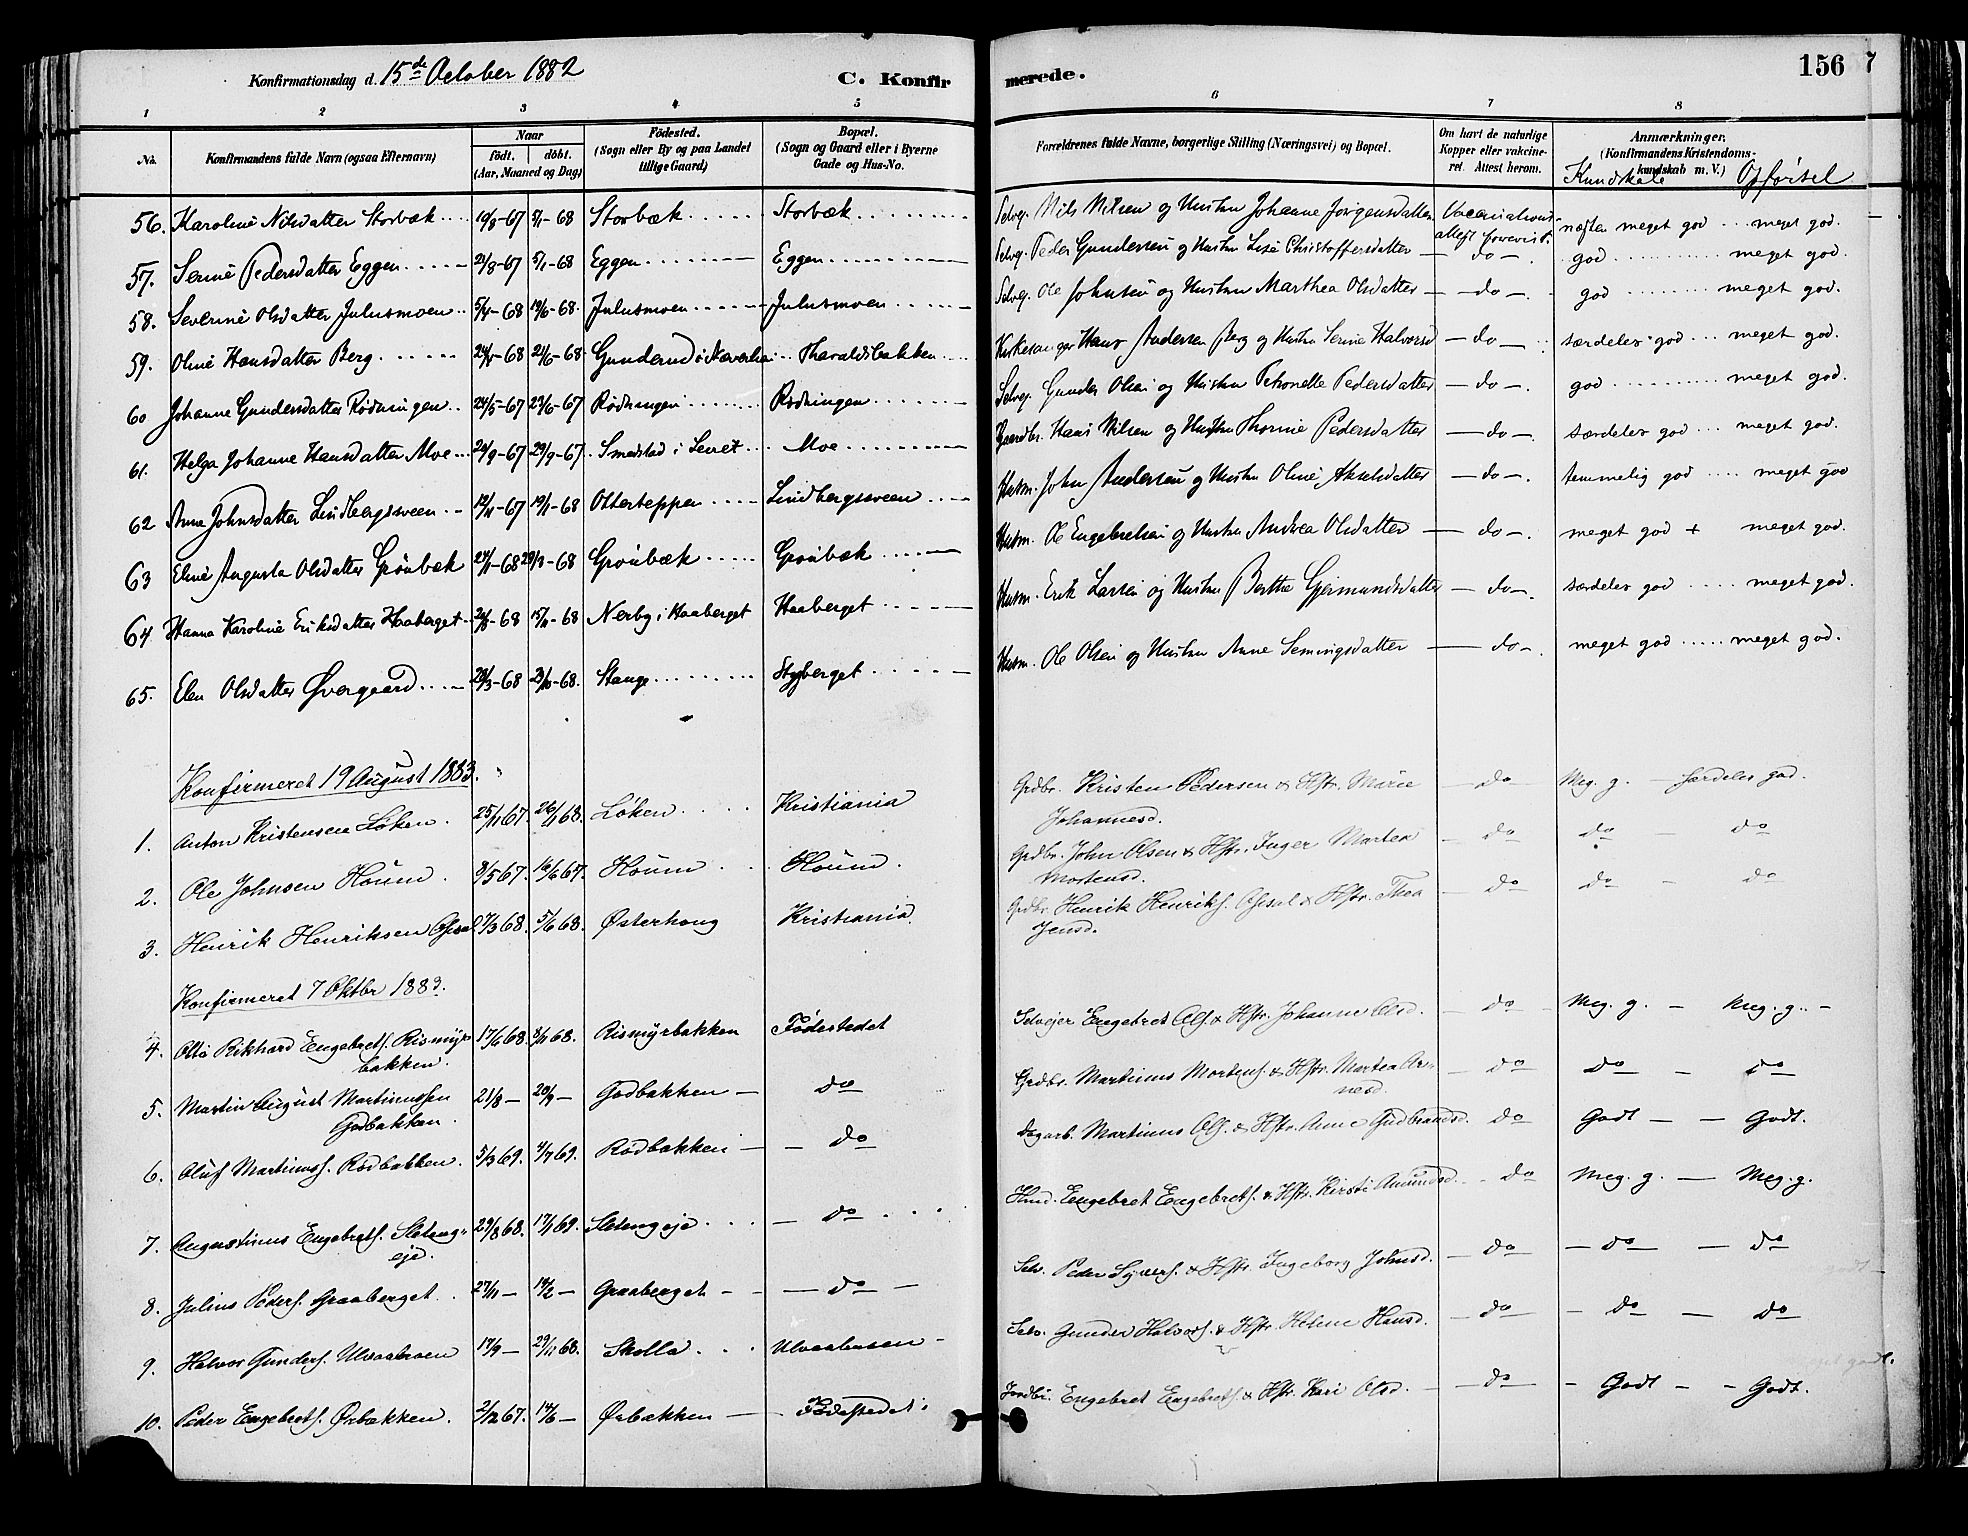 Konfirmationsdag d. 15de October 1882
C. Konfir
merede.
156
7
1 2 3 4 5 6 7 8
No.
Konfirmandens fulde Navn (ogsaa Efternavn)
Naar
födt. döbt.
(Aar, Maaned og Dag)
Födested.
(Sogn eller By og paa Landet
tillige Gaard)
Bopæl.
(Sogn og Gaard eller i Byerne
Gade og Hus-No.
Forældrenes fulde Navne, borgerlige Stilling (Næringsvei) og Bopæl.
Om havt de naturlige
Kopper eller vakcine-
ret. Attest herom.
Anmærkninger.
(Konfirmandens Kristendoms-
kundskab m. V.)
Kundskab Opförsel
56. Karoline Nilsdatter Storbæk 19/8-67 5/1-68 Storbæk Storbæk Selvg. Nils Nilsen og Hustru Johanne Jörgensdatter Vaccinations- attest forevist. næsten meget god meget god.
57. Serine Pedersdatter Eggen 21/8-67 5/1-68 Eggen Eggen Selvg. Peder Gundersen og Hustru Lise Christoffersdatter do god meget god.
58. Severine Olsdatter Julusmoen 5/4-68 19/6-68. Julusmoen Julusmoen Selvg. Ole Johnsen og Hustru Marthea Olsdatter do god meget god.
59. Oline Hansdatter Berg 24/5-68 21/6-68 Gunderud i Haraldsbakken Kirkesanger Hans Andersen Berg og Hustru Serine Halvorsd do særdeles god meget god.
60 Johanne Gundersdatter Rödningen 24/5-67 23/6-67 Rödningen Rödningen Selvg. Gunder Olsen og Hustru Petronelle Pedersdatter do god meget god.
61. Helga Johanne Hansdatter Moe 24/9-67 29/9-67 Smedstad i Leiret Moe Gaardbr. Hans Nilsen og Hustru Thorine Pedersdatter do særdeles god meget god.
62 Anne Johnsdatter Lindbergsveen 12/11-67 19/1-68 Otterteppen Lindbergsveen Husm. John Andersen og Hustru Oline Akselsdatter do temmelig god meget god
63 Eline Augusta Olsdatter Grönbæk 24/1-68 29/3-68 Grönbæk Grönbæk Husm. Ole Engebretsen og Hustru Andrea Olsdatter do meget god + meget god.
64 Hanna Karoline Eriksdatter Haaberget 24/8-68 15/11-68 Nerby i Haaberget Haaberget Husm. Erik Larsen og Hustru Berthe Gjermundsdatter do særdeles god meget god.
65. Elen Olsdatter Øvergaard 28/3-68 23/10-68. Stange Stygberget Husm. Ole Olsen og Hustru Anne Semingsdatter do meget god meget god.
Konfirmeret 19 August 1883.
1. Anton Kristensen Löken. 25/11 67. 26/1 68. Löken Kristiania Grdbr. Kristen Pedersen & Hstr. Marie do Meg. g. særdeles god.
Johannesd.
2. Ole Johnsen Houm. 8/5 67. 16/6 67. Houm Houm. Grdbr. John Olsen & Hstr. Inger Martea do do do
Mortensd.
3. Henrik Henriksen 7/3 68. 5/6 68. Østerhaug Kristiania Grdbr. Henrik Henriks. & Hstr. Thea do do do
Jensd.
Konfirmeret 7 Oktbr 1883.
4. Otto Rikhard Engebrets. Rismyr- 17/6 68. 8/11 68. Rismyrbakken Födestedet Selvejer Engebret Ols. & Hstr. Johanne Olsd. do Meg. g. Meg. g.
bakken.
5. Martin August Martinussen 21/8 — 20/9 — Godbakken do Grdbr. Martinus Mortens. & Hstr. Martea Ar- do do do
Godbakken. nesd.
6. Oluf Martinuss. Rodbakken. 5/3 69. 4/7 69. Rodbakken do Dagarb. Martinus Ols. & Hstr. Anne Gudbrandsd. do Godt Godt.
7. Augustinus Engebrets. Sletengs- 29/8 68. 17/1 69. Sletengeje do Husd. Engebret Engebrets. & Hstr. Kirsti Amundsd. do Meg. g. Meg. g.
eje.
8. Julius Peders. Graaberget. 27/11 — 14/2 — Graaberget do Selv. Peder Syvers. & Hstr. Ingeborg Johnsd. do do do
9. Halvor Gunders. Ulvaabroen 17/9 — 29/11 68. Skolla Ulvaabroen Selv. Gunder Halvors. & Hstr. Helene Hansd. do do do
10. Peder Engebrets. Øsbakken. 2/12 67. 14/6 — Øsbakken Födestedet Jordbr. Engebret Engebrets. & Hstr. Kari Olsd. do Godt Godt.